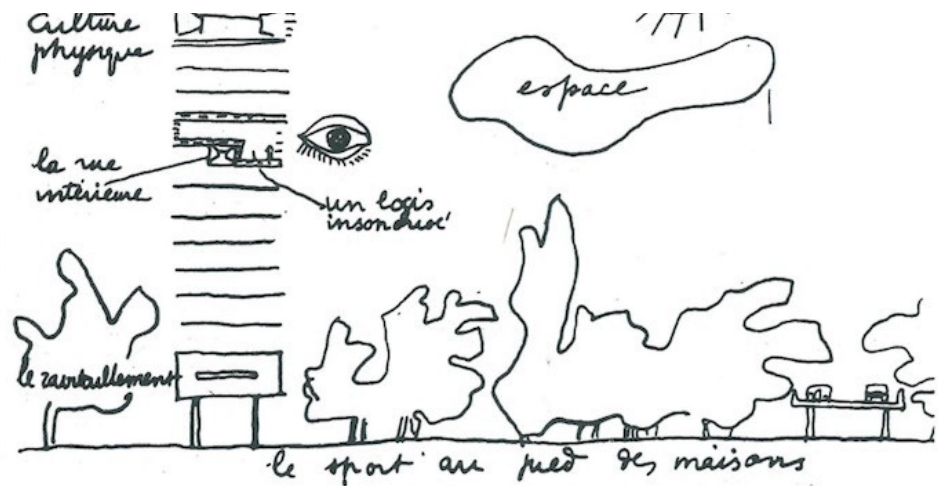 Culture
physique
espace
la rue
intérieure
un logis
insonorisé
le ravitaillement
le sport au pied des maisons